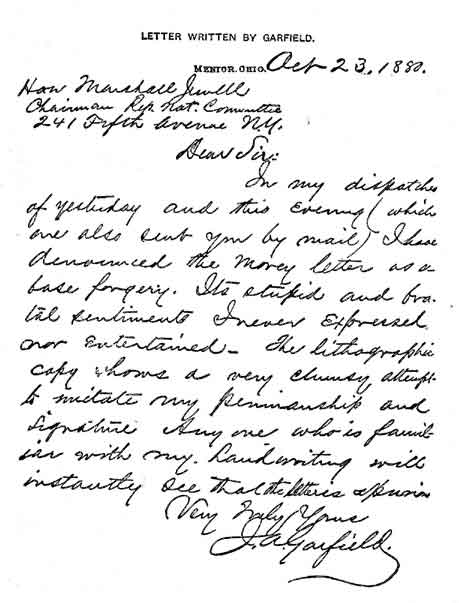 LETTER WRITTEN BY GARFIELD.
MENTOR, OHIO. Oct 23, 1880.
Hon Marshall Jewell
Chairman Rep. Nat. Committee
241 Fifth Avenue N.Y.
Dear Sir:
In my dispatches
of yesterday and this evening (which
are also sent you by mail) I have
denounced the Morey letter as a
base forgery. Its stupid and bru-
tal sentiments I never expressed
nor entertained— The lithographic
copy shows a very clumsy attempt
to imitate my penmanship and
signature Any one who is famil-
iar with my handwriting will
instantly see that the letter is spurious
Very Truly Yours
J.A. Garfield.